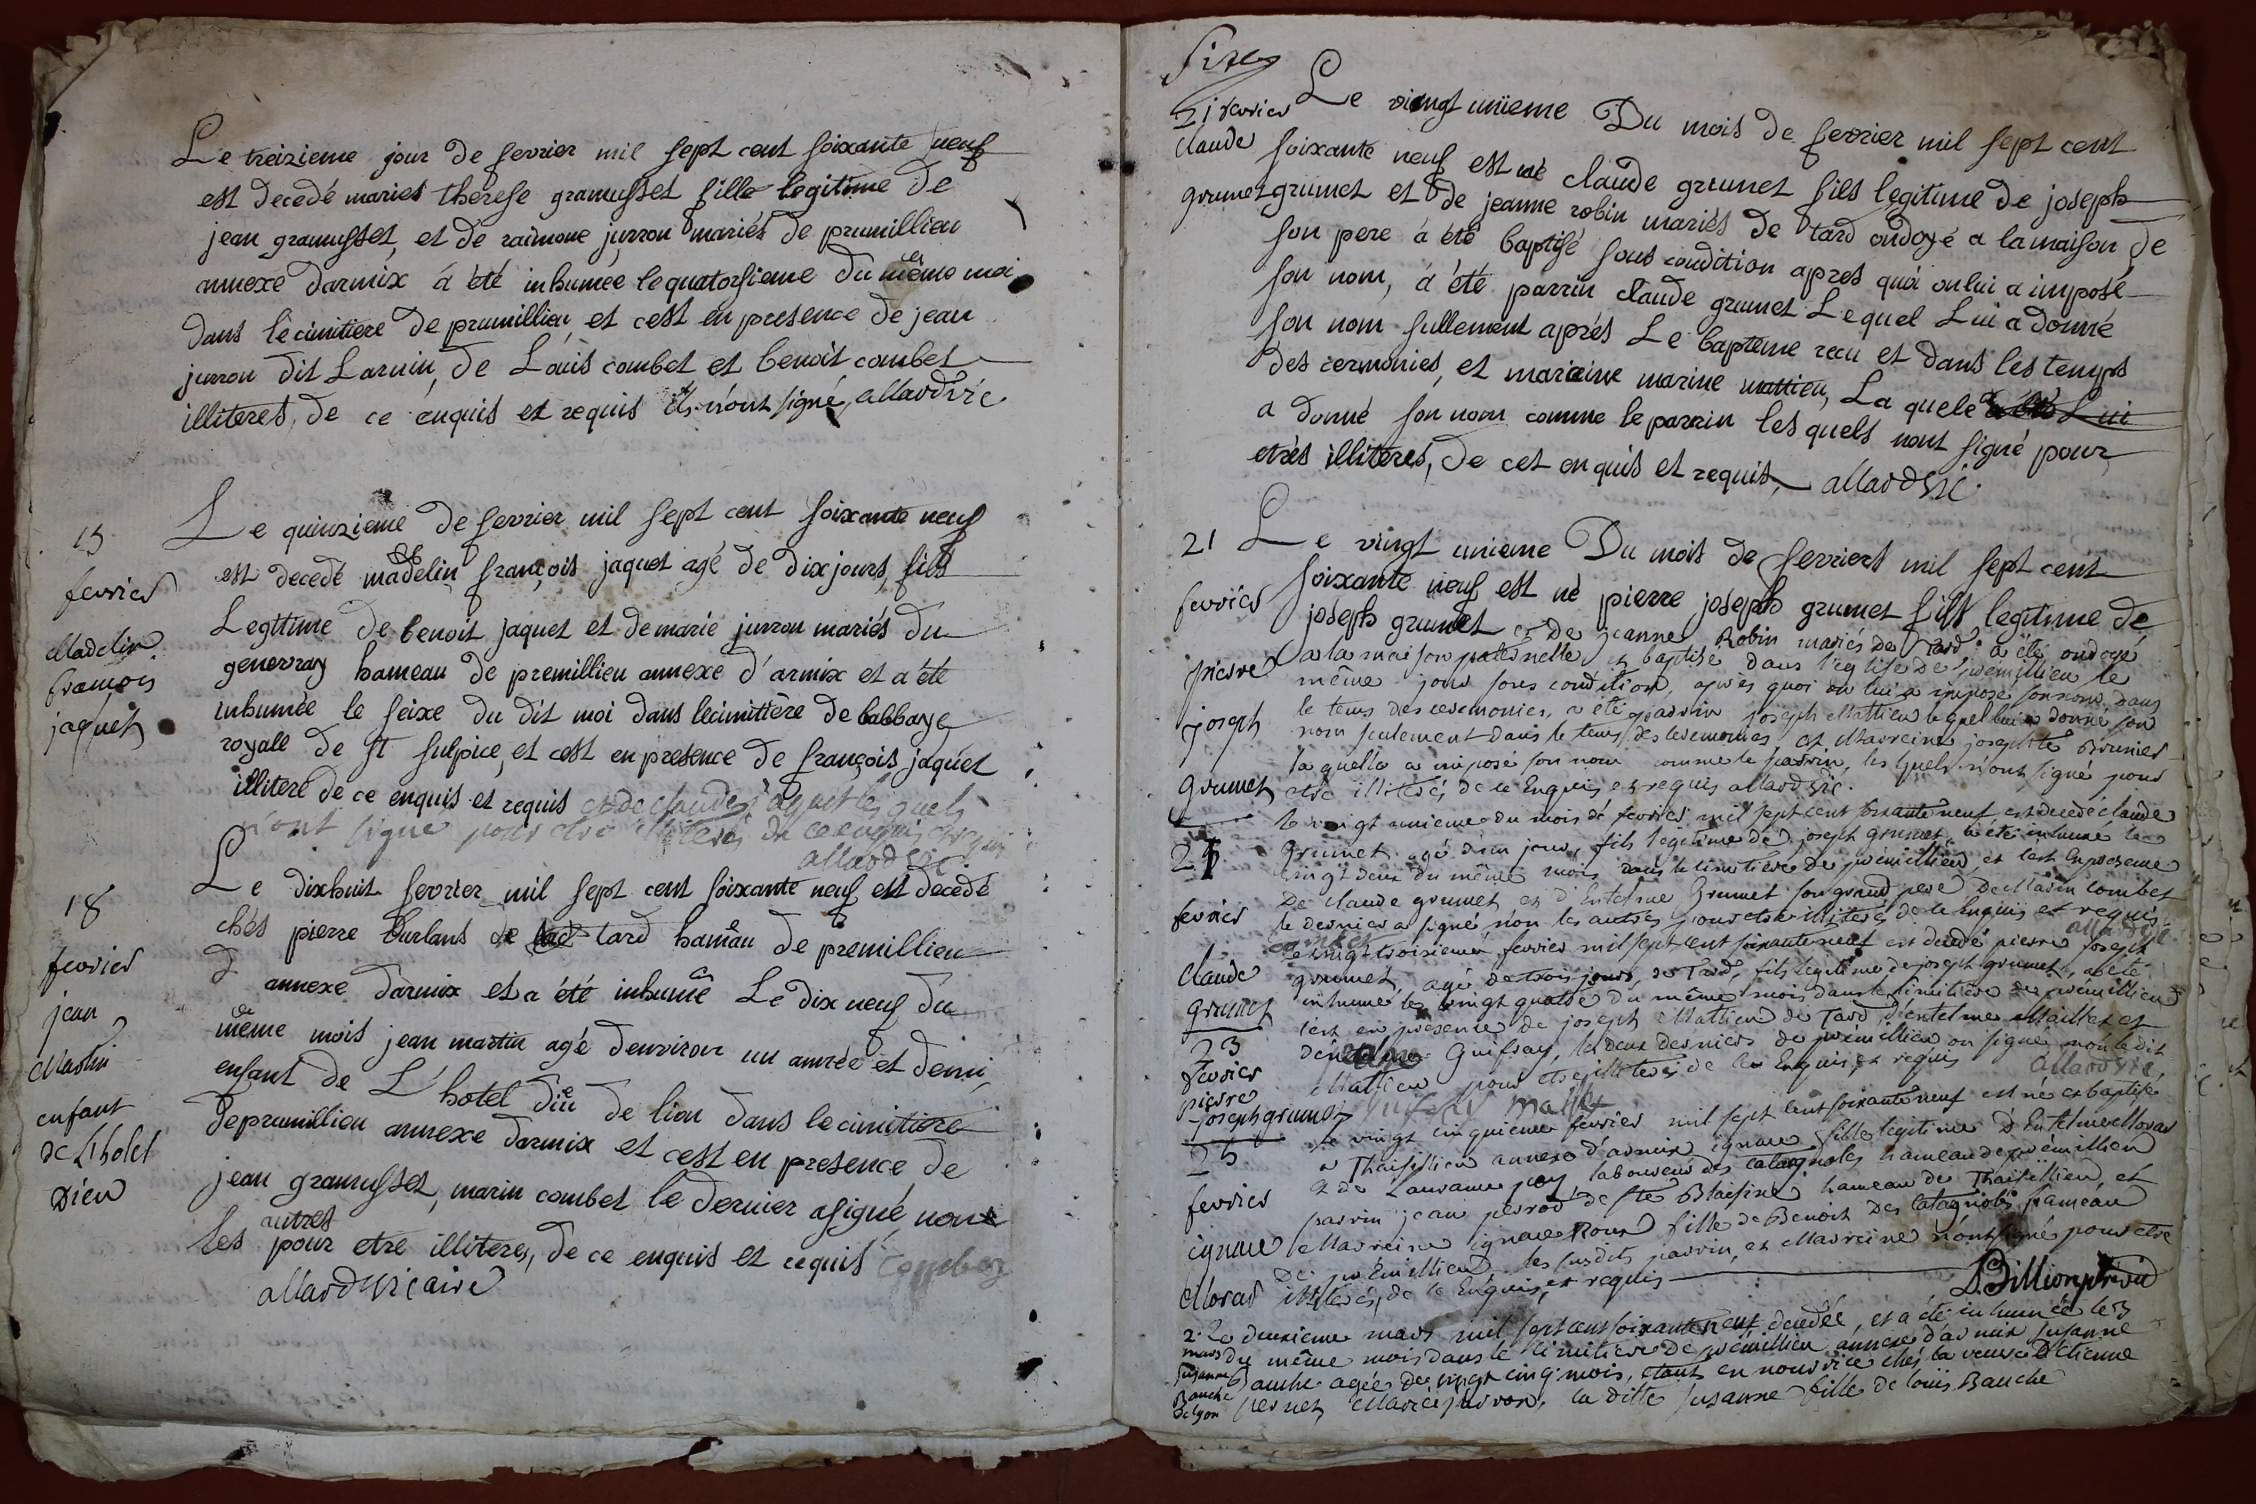 Le treizieme jour de fevrier mil sept cent soixante neuf
est decedé maries therese gramusset fille legitime de
jean gramusset, et de raimone jurron mariés de prumillieu
annexe darmix á été inhumée le quatorsieme du même moi
dans le cimitiere de prumillieu, et cest en presence de jean
jurron dit Larnin, de Loüis combet et benoit combet
illiteres, de ce enquis et requis ils n'ont signé, allard vic
15
fevrier
Madelin
françois
jaquet
Le quinzieme de fevrier mil sept cent soixante neuf
est decedé madelin françois jaquet agé de dix jours, fils
Legitime de benoit jaquet et de marie jurron mariés du
genevray hameau de premillieu annexe d'armix et a été
inhumée le seixe du dit moi dans le cimittière de l'abbaye
royalle de st sulpice, et cest en presence de françois jaquet
illiteré de ce enquis et requis et de claude jaquet les quels
n'ont signé pour etre illiterés de ce enquis et requis
allard vic
18
fevrier
jean
Martin
enfant
de Lhotel
Dieu
Le dixhuit fevrier mil sept cent soixante neuf est decedé
chés pierre burlans de tard hamêau de premillieu
annexe darmix et a été inhumé Le dix neuf du
même mois jean martin agé denviron un année et demi,
enfant de L'hotel diëu de lion dans le cimitiere
de prumillieu annexe darmix et cest en presence de
jean gramusset, marin combet le dernier a signé, non
les autres pour etre illiteres, de ce enquis et requis combet
allard vicaire
21 fevrier
Claude
grumet
Le vingt uniieme Du mois de fevrier mil sept cent
soixante neuf est né claude grumet fils legitime de joseph
grumet et de jeanne robin mariés de tard ondoyé a la maison de
son pere á été baptisé sous condition apres quoi on lui a imposé
son nom, á été parrin claude grumet Lequel Lui a donné
son nom sullement aprés Le bapteme recu et dans les temps
des cermonies, et maraine marine mattieu, La quele Lui
a donné son nom comme le parrin les quels nont signé pour
etrés illiteres, de cet enquis et requis, allard vic
21
fevrier
pierre
joseph
grumet
Le vingt unieme Du mois de fevriert mil sept cent
soixante neuf est né pierre joseph grumet fils legitime de
joseph grumet et de jeanne Robin mariés de Tard a été ondoyé
a la maison paternelle et baptisé dans l'eglise de premillieu le
même jour sous condition, après quoi on lui a imposé son nom, dans
le tems des ceremonies, a été parrin joseph Mattieu lequel lui a donné son
nom seulement dans le tems des ceremonies et Marreine josephte Brunier
laquelle a imposé son nom comme le parrin, les quels n'ont signé pour
etre illiterés de ce Enquis et requis allard vic.
21
fevrier
claude
grumet
le vingt unieme du mois de fevrier mil sept cent soixante neuf est decedé claude
grumet agé d'un jour, fils legitime de joseph grumet, a été inhumé le
vingt deux du même mois dans le cimetiere de prémillieu et c'est en presence
De claude grumet et d'Entelme Grumet son grand pere de Marin combet
le dernier a signé non les autres pour etre illiterés de ce Enquis et requis
combet allard vic
23
fevrier
pierre
joseph grumet
le vingt troisieme fevrier mil sept cent soixante neuf est decedé pierre joseph
grumet, agé de trois jours, de Tard, fils legitime de joseph grumet, a été
inhumé le vingt quatre du même mois dans le cimitiere de prémillieu
c'est en presence de joseph Mattieu de Tard d'entelme Maillet et
Guifray, les deux derniers de prémillieu on signé non le dit
Mattieu pour etre illiterés de ce Enquis et requis allard vic,
25
fevrier
ignace
Moras
le vingt cinquieme fevrier mil sept cent soixante neuf est né et baptisé
a Thaisillieu annexe d'armix ignace fille legitime d'Entelme Moras
laboureur des catagnoles hameau de prémillieu
parrin jean perrod de ste Blaisine hameau de Thaisillieu, et
Marreine ignace Roux fille de Benoit des Catagnoles hameau
De prémillieu les susdits parrin, et Marreine n'ont signé pour etre
illiterés, de ce Enquis, et requis
2.
mars
Susanne
Bauche
de lyon
Le deuxieme mars mil sept cent soixante neuf, decedée, et a été inhumée le 3
du même mois dans le cimitiere de prémillieu annexe d'armix susanne
Bauche agée de vingt cinq mois, etant en nourrice chés la veuve D'etienne
Marie jurron, la ditte susanne fille de loüis Bauche